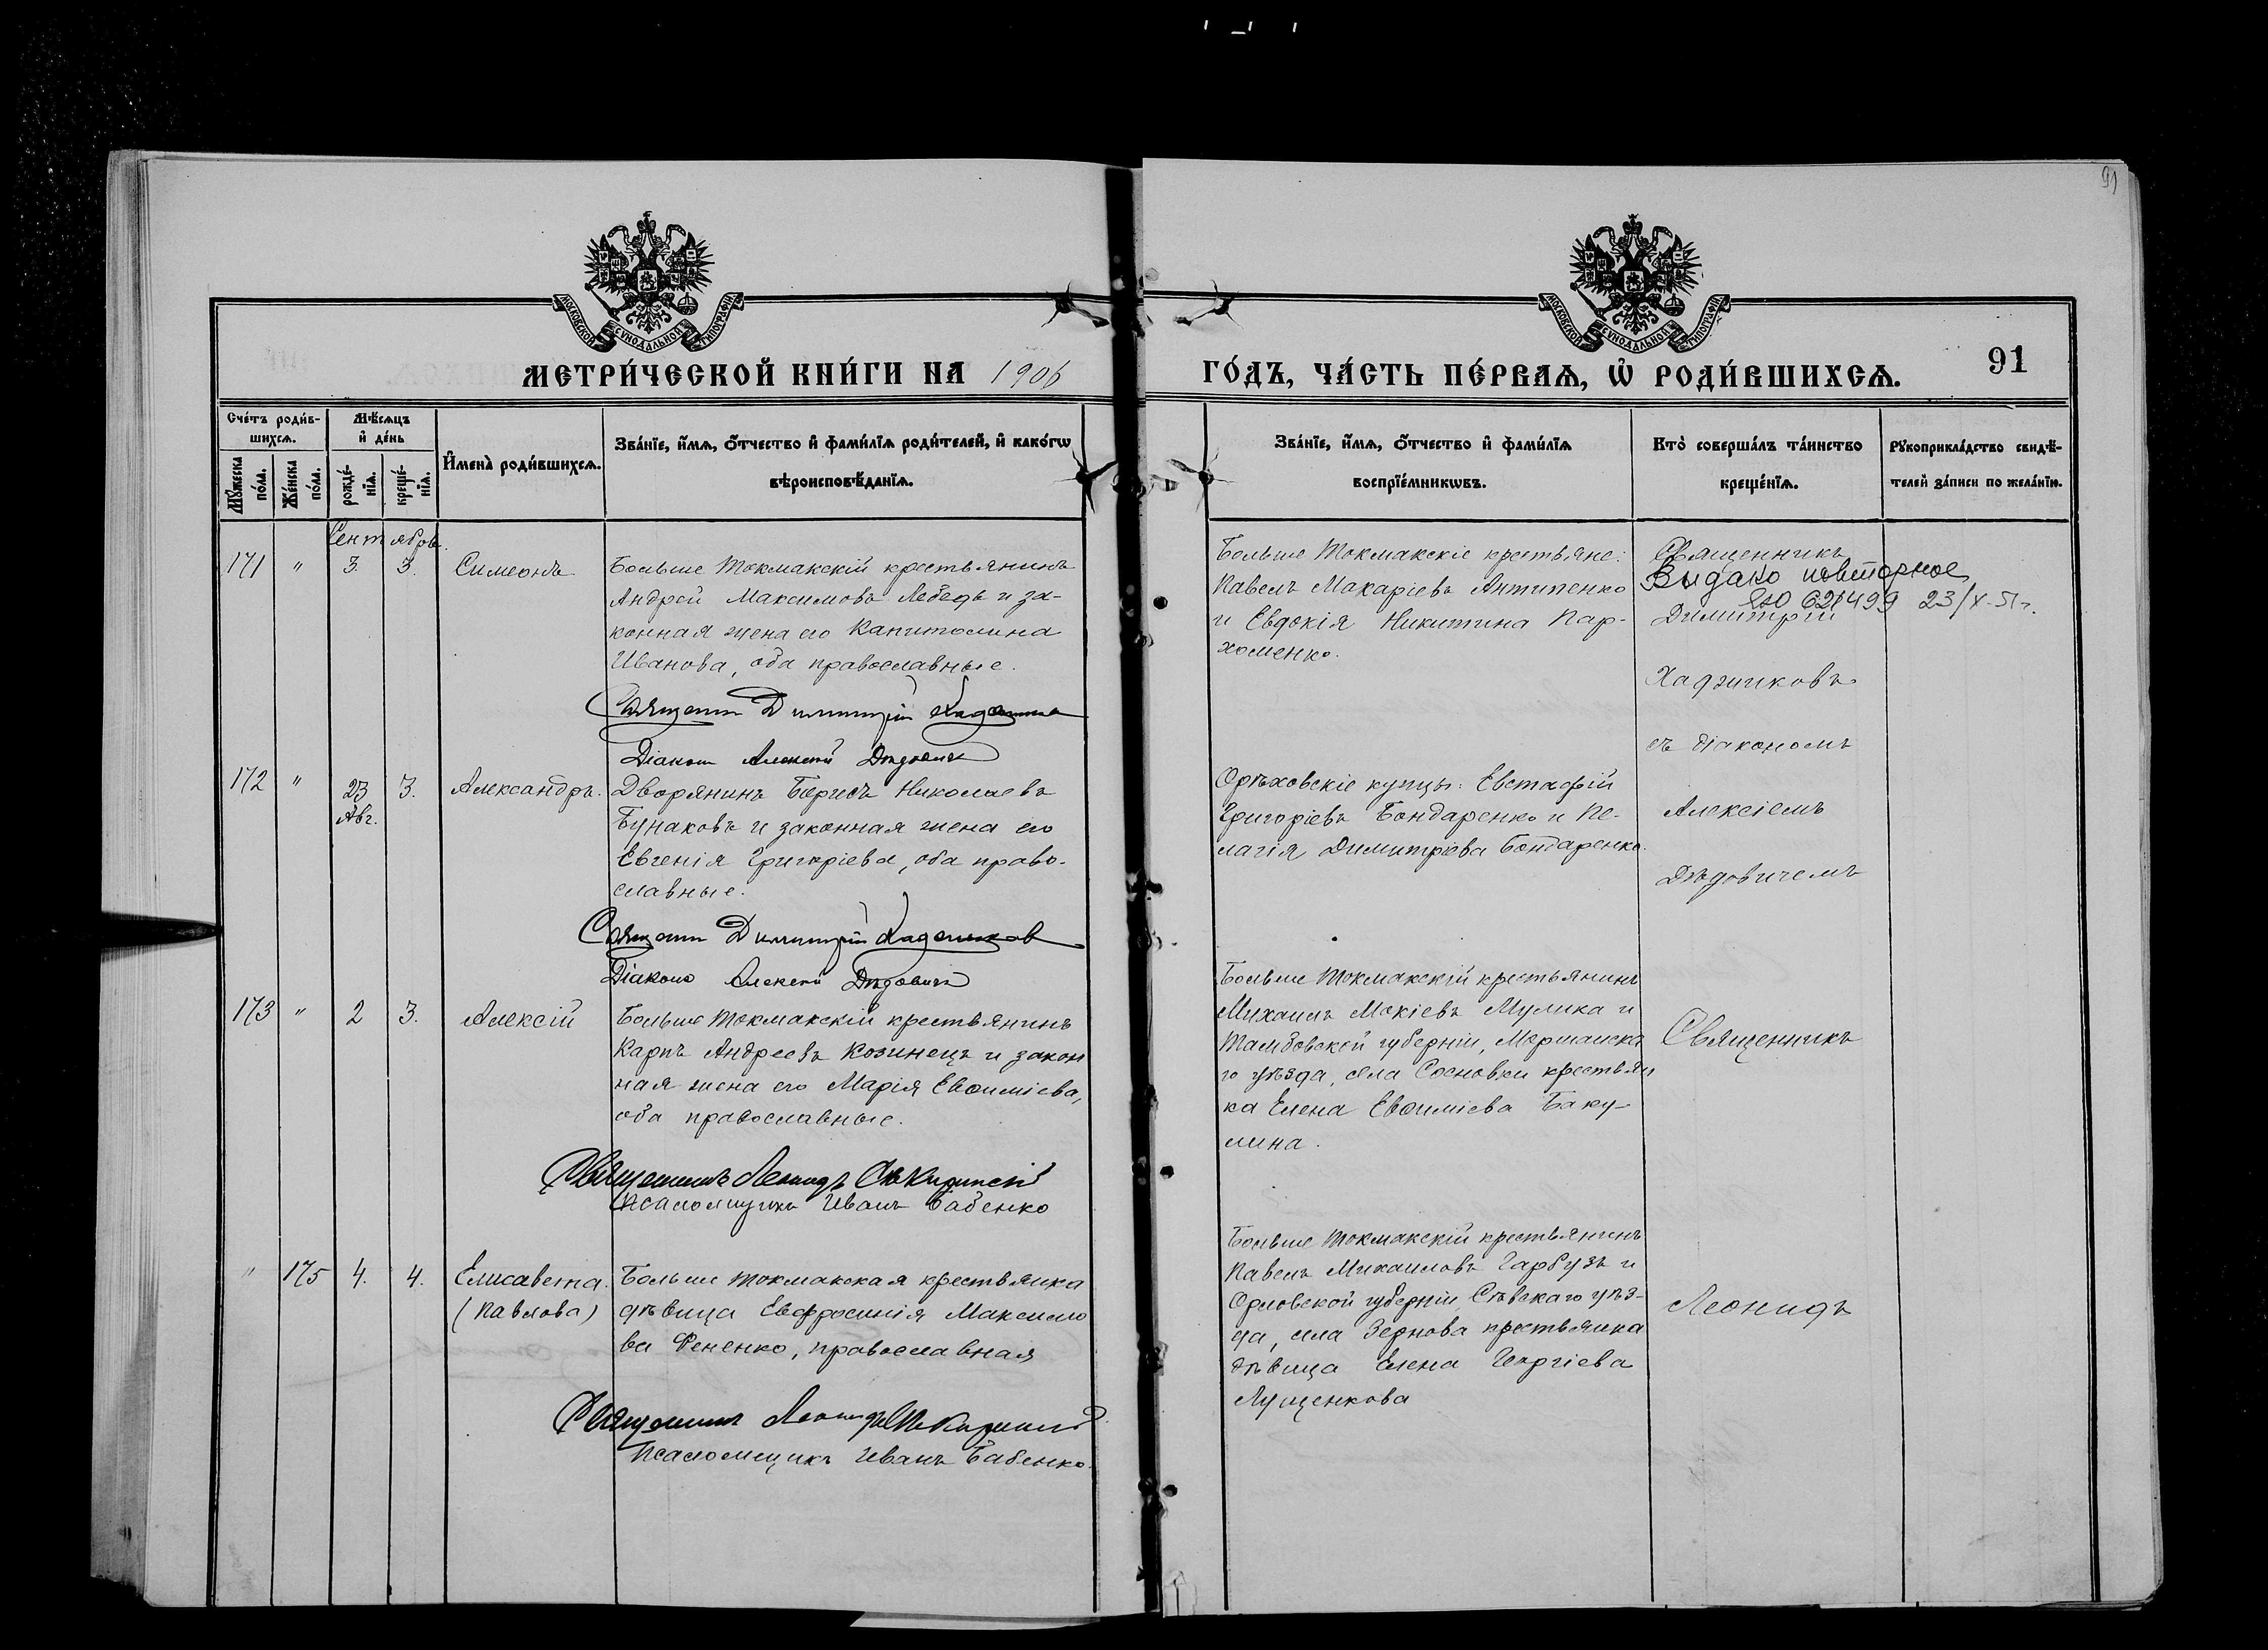 91
МОСКОВСКОЙ СѴНОДАЛЬНОЙ ТИПОГРАФІИ
МОСКОВСКОЙ СѴНОДАЛЬНОЙ ТИПОГРАФІИ
МЕТРИ́ЧЕСКОЙ КНИ́ГИ НА 1906
ГО́ДЪ, ЧА́СТЬ ПЕ́РВАѦ, Ѡ҆ РОДИ́ВШИХСѦ.
91
Сче́тъ роди́в-
шихсѧ.
Мѣ́сѧцъ
и҆ де́нь
Мꙋ́жеска по́ла.
Же́нска по́ла.
рожде́-нїѧ.
креще́-нїѧ.
И҆мена̀ роди́вшихсѧ.
Зва́нїе, и҆́мѧ, ѻ҆́тчество и҆ фами́лїѧ роди́телей, и҆ како́гѡ
вѣроисповѣ́данїѧ.
Зва́нїе, и҆́мѧ, ѻ҆́тчество и҆ фами́лїѧ
воспрїе́мникѡвъ.
Кто̀ соверша́лъ та́инство
креще́нїѧ.
Рꙋкоприкла́дство свидѣ́-
телей за́писи по жела́нїю.
Сентябрь.
171 " 3. 3. Симеонъ
Больше Токмакскій крестьянинъ
Андрей Максимовъ Лебедь и за-
конная жена его Капитолина
Иванова, оба православные.
Священник Димитрій Хаджинов
Діаконъ Алексій Дѣдовичъ
Больше Токмакскіе крестьяне:
Павелъ Макаріевъ Антипенко
и Евдокія Никитина Пар-
хоменко.
Священникъ
Видако повторное
621499 23/X-51 г.
Димитрій
Хаджинковъ
съ діакономъ
Алексіемъ
Дѣдовичемъ
172 " 23 Авг. 3. Александръ.
Дворянинъ Борисъ Николаевъ
Бунаковъ и законная жена его
Евгенія Григоріева, оба право-
славные.
Священник Димитрій Хаджинков
Діаконъ Алексій Дѣдовичъ
Орѣховскіе купцы: Евстафій
Григоріевъ Бондаренко и Пе-
лагія Димитріева Бондаренко.
173 " 2 3. Алексій
Больше Токмакскій крестьянинъ
Карпъ Андреевъ Козинецъ и закон
ная жена его Марія Евѳиміева,
оба православные.
Священникъ Леонидъ
Псаломщикъ Иванъ Бабенко
Больше Токмакскій крестьянинъ
Михаилъ Мокіевъ Мулика и
Тамбовской губерніи, Моршанска
го уѣзда, села Сосновки крестьян
ка Елена Евѳиміева Баку-
лина.
Священникъ
" 175 4. 4. Елисавета.
(Павлова)
Больше Токмакская крестьянка
дѣвица Евфросинія Максимо
ва Фененко, православная
Священникъ Леонидъ
Псаломщикъ Иванъ Бабенко.
Больше Токмакскій крестьянинъ
Павелъ Михаиловъ Гарбузъ и
Орловской губерніи Сѣвскаго уѣз-
да, села Зернова крестьянка
дѣвица Елена Георгіева
Лущенкова
Леонидъ